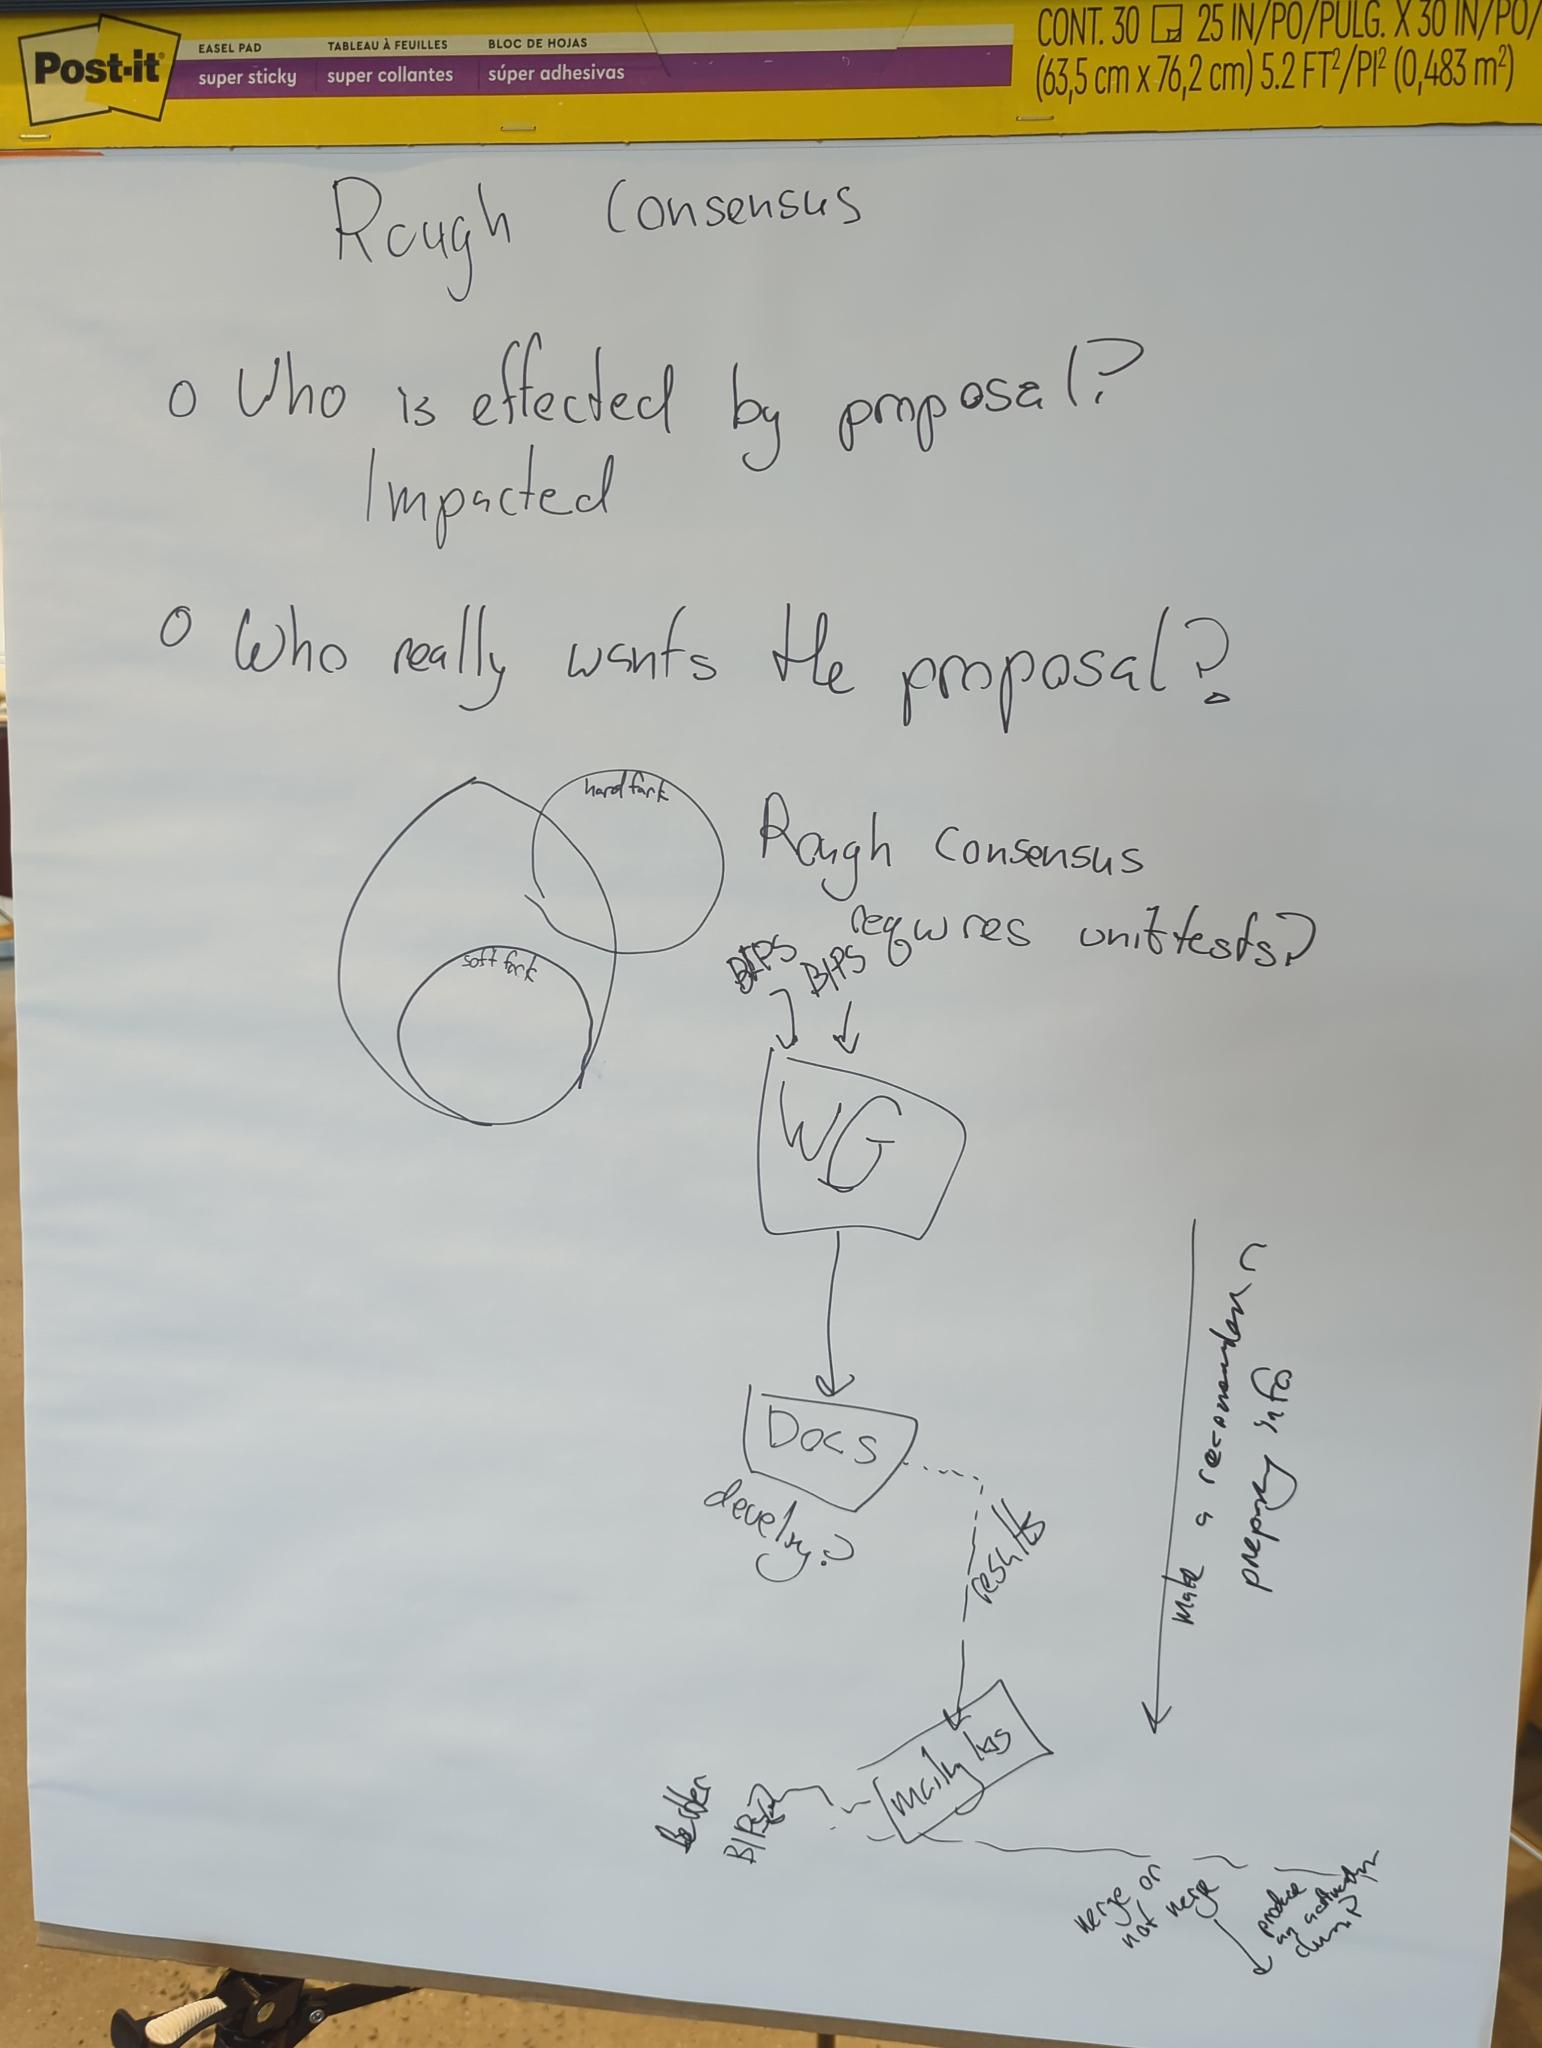 Post-it
EASEL PAD
super sticky
TABLEAU À FEUILLES
super collantes
BLOC DE HOJAS
súper adhesivas
CONT. 30 25 IN/PO/PULG. X 30 IN/PO/
(63,5 cm x 76,2 cm) 5.2 FT²/PI² (0,483 m²)
Rough Consensus
o Who is effected by proposal?
Impacted
o Who really wants the proposal?
hard fork
soft fork
Rough Consensus
requires unit tests?
BIPS BIPS
WG
Docs
results
Make a
preparing info
better
BIPs
merge or
not merge
produce
an